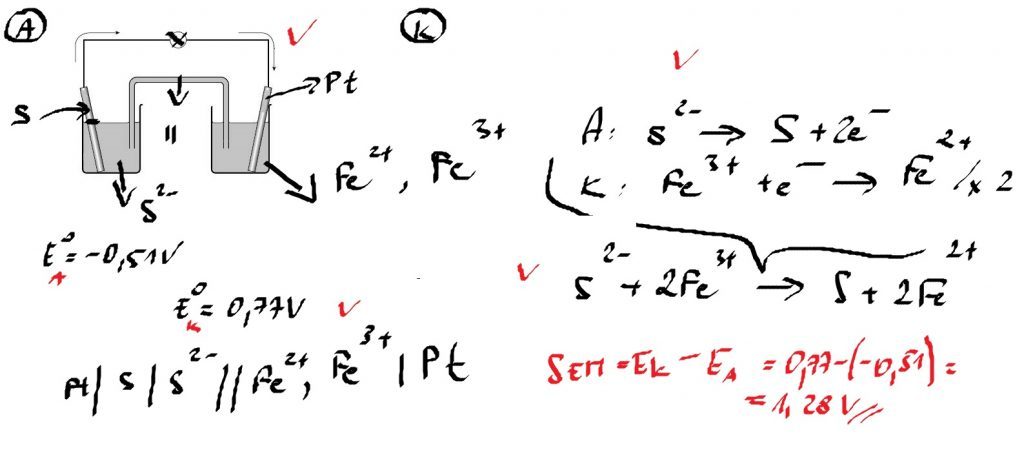 A
K
Pt
S
||
Fe²⁺, Fe³⁺
S²⁻
E⁰ = -0,51V
A
E⁰ = 0,77V
K
Pt/S/S²⁻//Fe²⁺, Fe³⁺|Pt
A: S²⁻ → S + 2e⁻
K: Fe³⁺ + e⁻ → Fe²⁺ / x 2
S²⁻ + 2Fe³⁺ → S + 2Fe²⁺
SEM = EK - EA = 0,77-(-0,51) =
= 1,28 V//